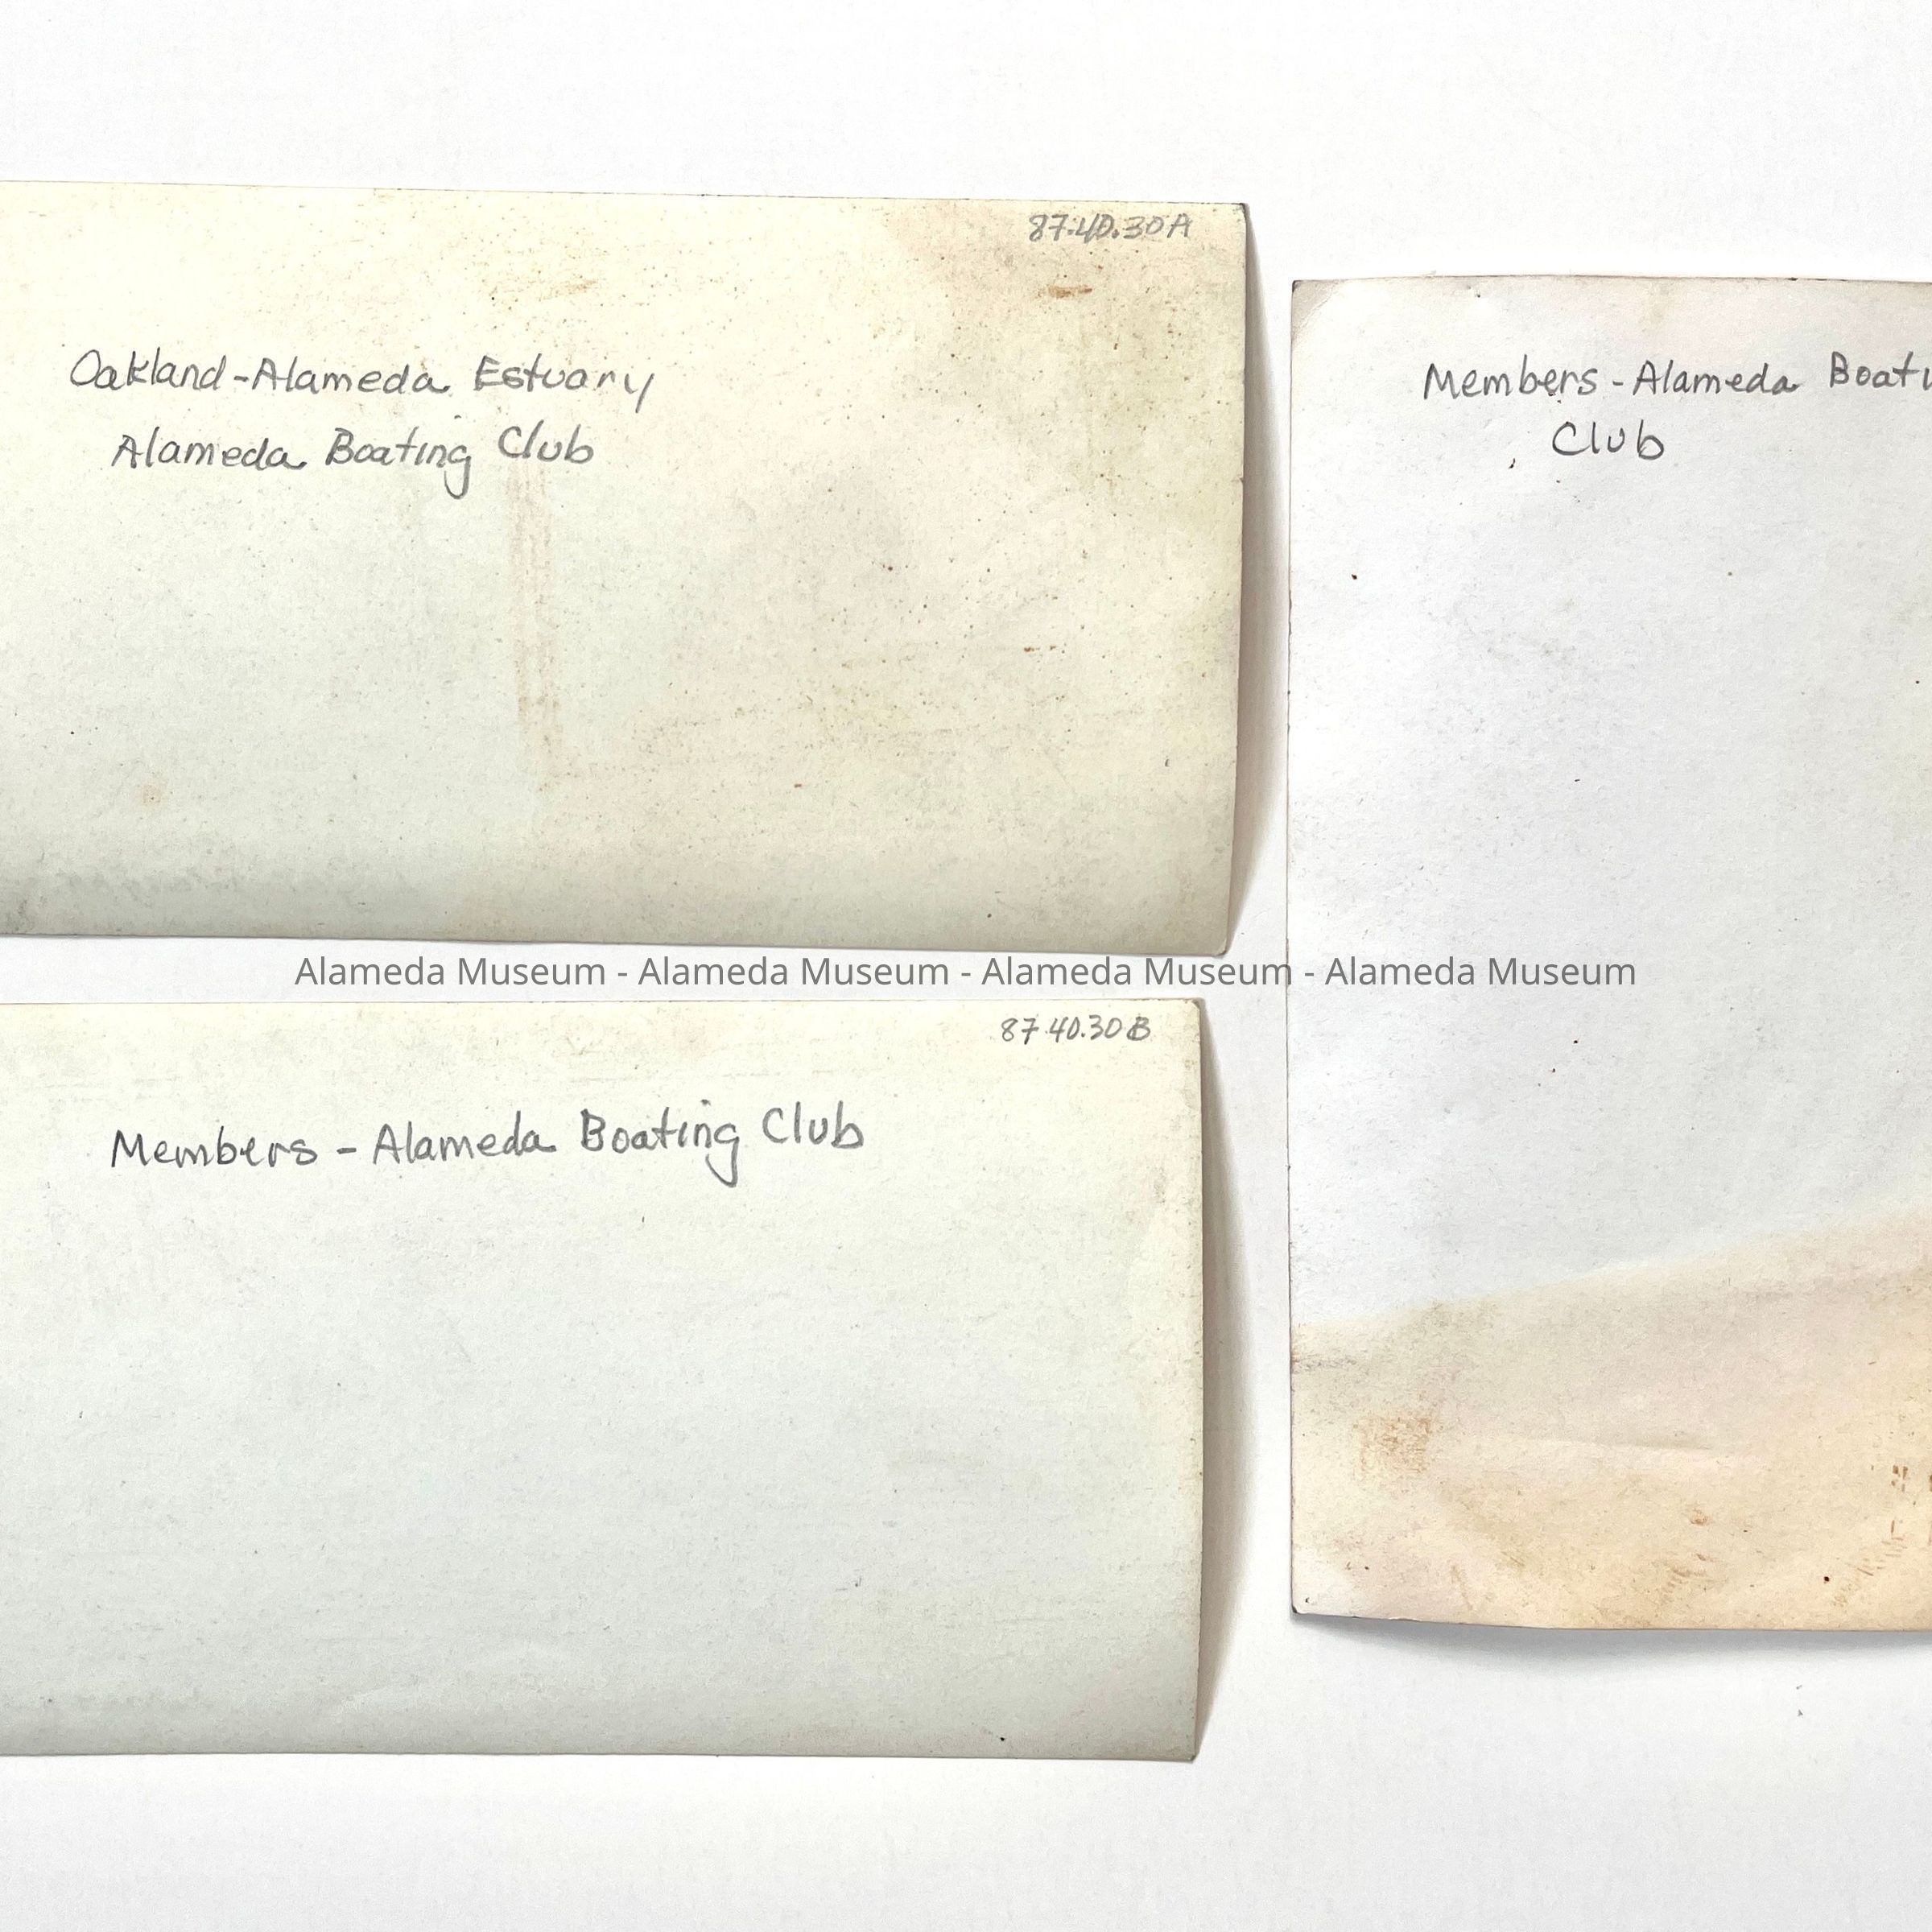 87.40.30A
Oakland-Alameda Estuary
Alameda Boating Club
Members-Alameda Boati
Club
Alameda Museum - Alameda Museum - Alameda Museum - Alameda Museum
87.40.30B
Members - Alameda Boating Club